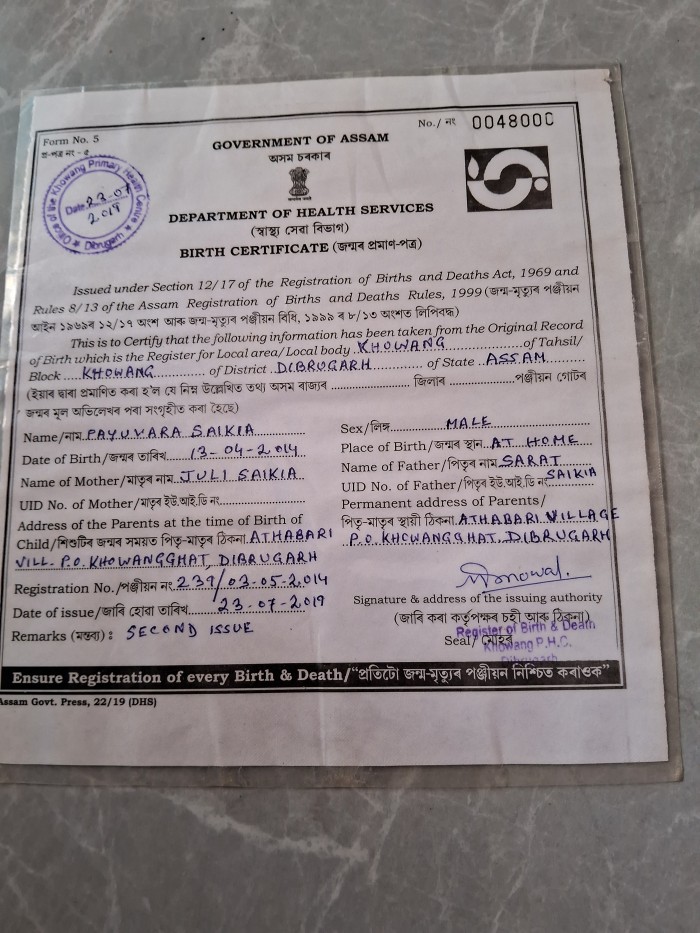 Form No. 5
প্ৰ-পত্ৰ নং - ৫
No./ নং 0048000
GOVERNMENT OF ASSAM
অসম চৰকাৰ
Office of the Khowang Primary Health Centre
Dibrugarh
Date 23-07
2019
DEPARTMENT OF HEALTH SERVICES
(স্বাস্থ্য সেৱা বিভাগ)
BIRTH CERTIFICATE (জন্মৰ প্ৰমাণ-পত্ৰ)
Issued under Section 12/17 of the Registration of Births and Deaths Act, 1969 and
Rules 8/13 of the Assam Registration of Births and Deaths Rules, 1999 (জন্ম-মৃত্যুৰ পঞ্জীয়ন
আইন ১৯৬৯ৰ ১২/১৭ অংশ আৰু জন্ম-মৃত্যুৰ পঞ্জীয়ন বিধি, ১৯৯৯ ৰ ৮/১৩ অংশত লিপিবদ্ধ)
This is to Certify that the following information has been taken from the Original Record
of Birth which is the Register for Local area/ Local body KHOWANG of Tahsil/
Block KHOWANG of District DIBRUGARH of State ASSAM
(ইয়াৰ দ্বাৰা প্ৰমাণিত কৰা হ'ল যে নিম্ন উল্লেখিত তথ্য অসম ৰাজ্যৰ জিলাৰ পঞ্জীয়ন গোটৰ
জন্মৰ মূল অভিলেখৰ পৰা সংগৃহীত কৰা হৈছে)
Name/নাম PAYUVARA SAIKIA
Sex/লিঙ্গ MALE
Date of Birth/জন্মৰ তাৰিখ 13-04-2014
Place of Birth/জন্মৰ স্থান AT HOME
Name of Mother/মাতৃৰ নাম JULI SAIKIA
Name of Father/পিতৃৰ নাম SARAT SAIKIA
UID No. of Mother/মাতৃৰ ইউ.আই.ডি নং
UID No. of Father/পিতৃৰ ইউ.আই.ডি নং
Address of the Parents at the time of Birth of
Child/শিশুটিৰ জন্মৰ সময়ত পিতৃ-মাতৃৰ ঠিকনা ATHABARI
VILL. P.O. KHOWANGGHAT, DIBRUGARH
Permanent address of Parents/
পিতৃ-মাতৃৰ স্থায়ী ঠিকনা ATHABARI VILLAGE
P.O. KHOWANGGHAT. DIBRUGARH
Registration No./পঞ্জীয়ন নং 239/03-05-2014
Date of issue/জাৰি হোৱা তাৰিখ 23-07-2019
Remarks (মন্তব্য) : SECOND ISSUE
Signature & address of the issuing authority
(জাৰি কৰা কৰ্তৃপক্ষৰ চহী আৰু ঠিকনা)
Seal/ মোহৰ
Register of Birth & Death
Khowang P.H.C.
Dibrugarh
Ensure Registration of every Birth & Death/"প্ৰতিটো জন্ম-মৃত্যুৰ পঞ্জীয়ন নিশ্চিত কৰাওক"
Assam Govt. Press, 22/19 (DHS)